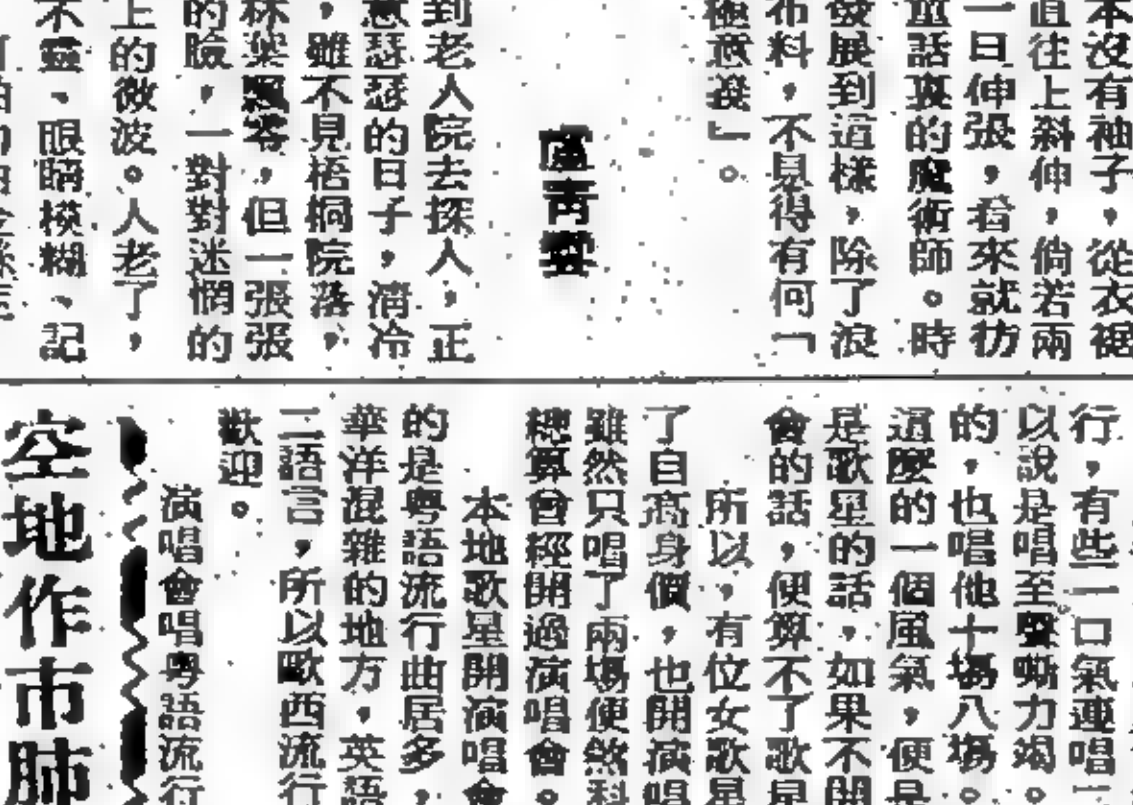 本沒有袖子，從衣裾
直往上斜伸，倘若兩
一日伸張，看來就彷
童話裏的魔術師。時
發展到這樣，除了浪
布料，不見得有何「
極意義」。
盧青雲
到老人院去探人，正
意瑟瑟的日子，清冷
，雖不見梧桐院落，
林葉飄零，但一張張
的臉，一對對迷惘的
上的微波。人老了，
不靈、眼睛模糊、記
行，有些一口氣連唱
以說是唱至聲嘶力竭。
的，也唱他十場八場。
這麼的一個風氣，便是
是歌星的話，如果不開
會的話，便算不了歌星
所以，有位女歌星
了自高身價，也開演唱
雖然只唱了兩場便煞科
總算會經開過演唱會。
本地歌星開演唱會
的是粵語流行曲居多，
華洋混雜的地方，英語
二語言，所以歐西流行
歡迎。
演唱會唱粵語流行
空地作市肺